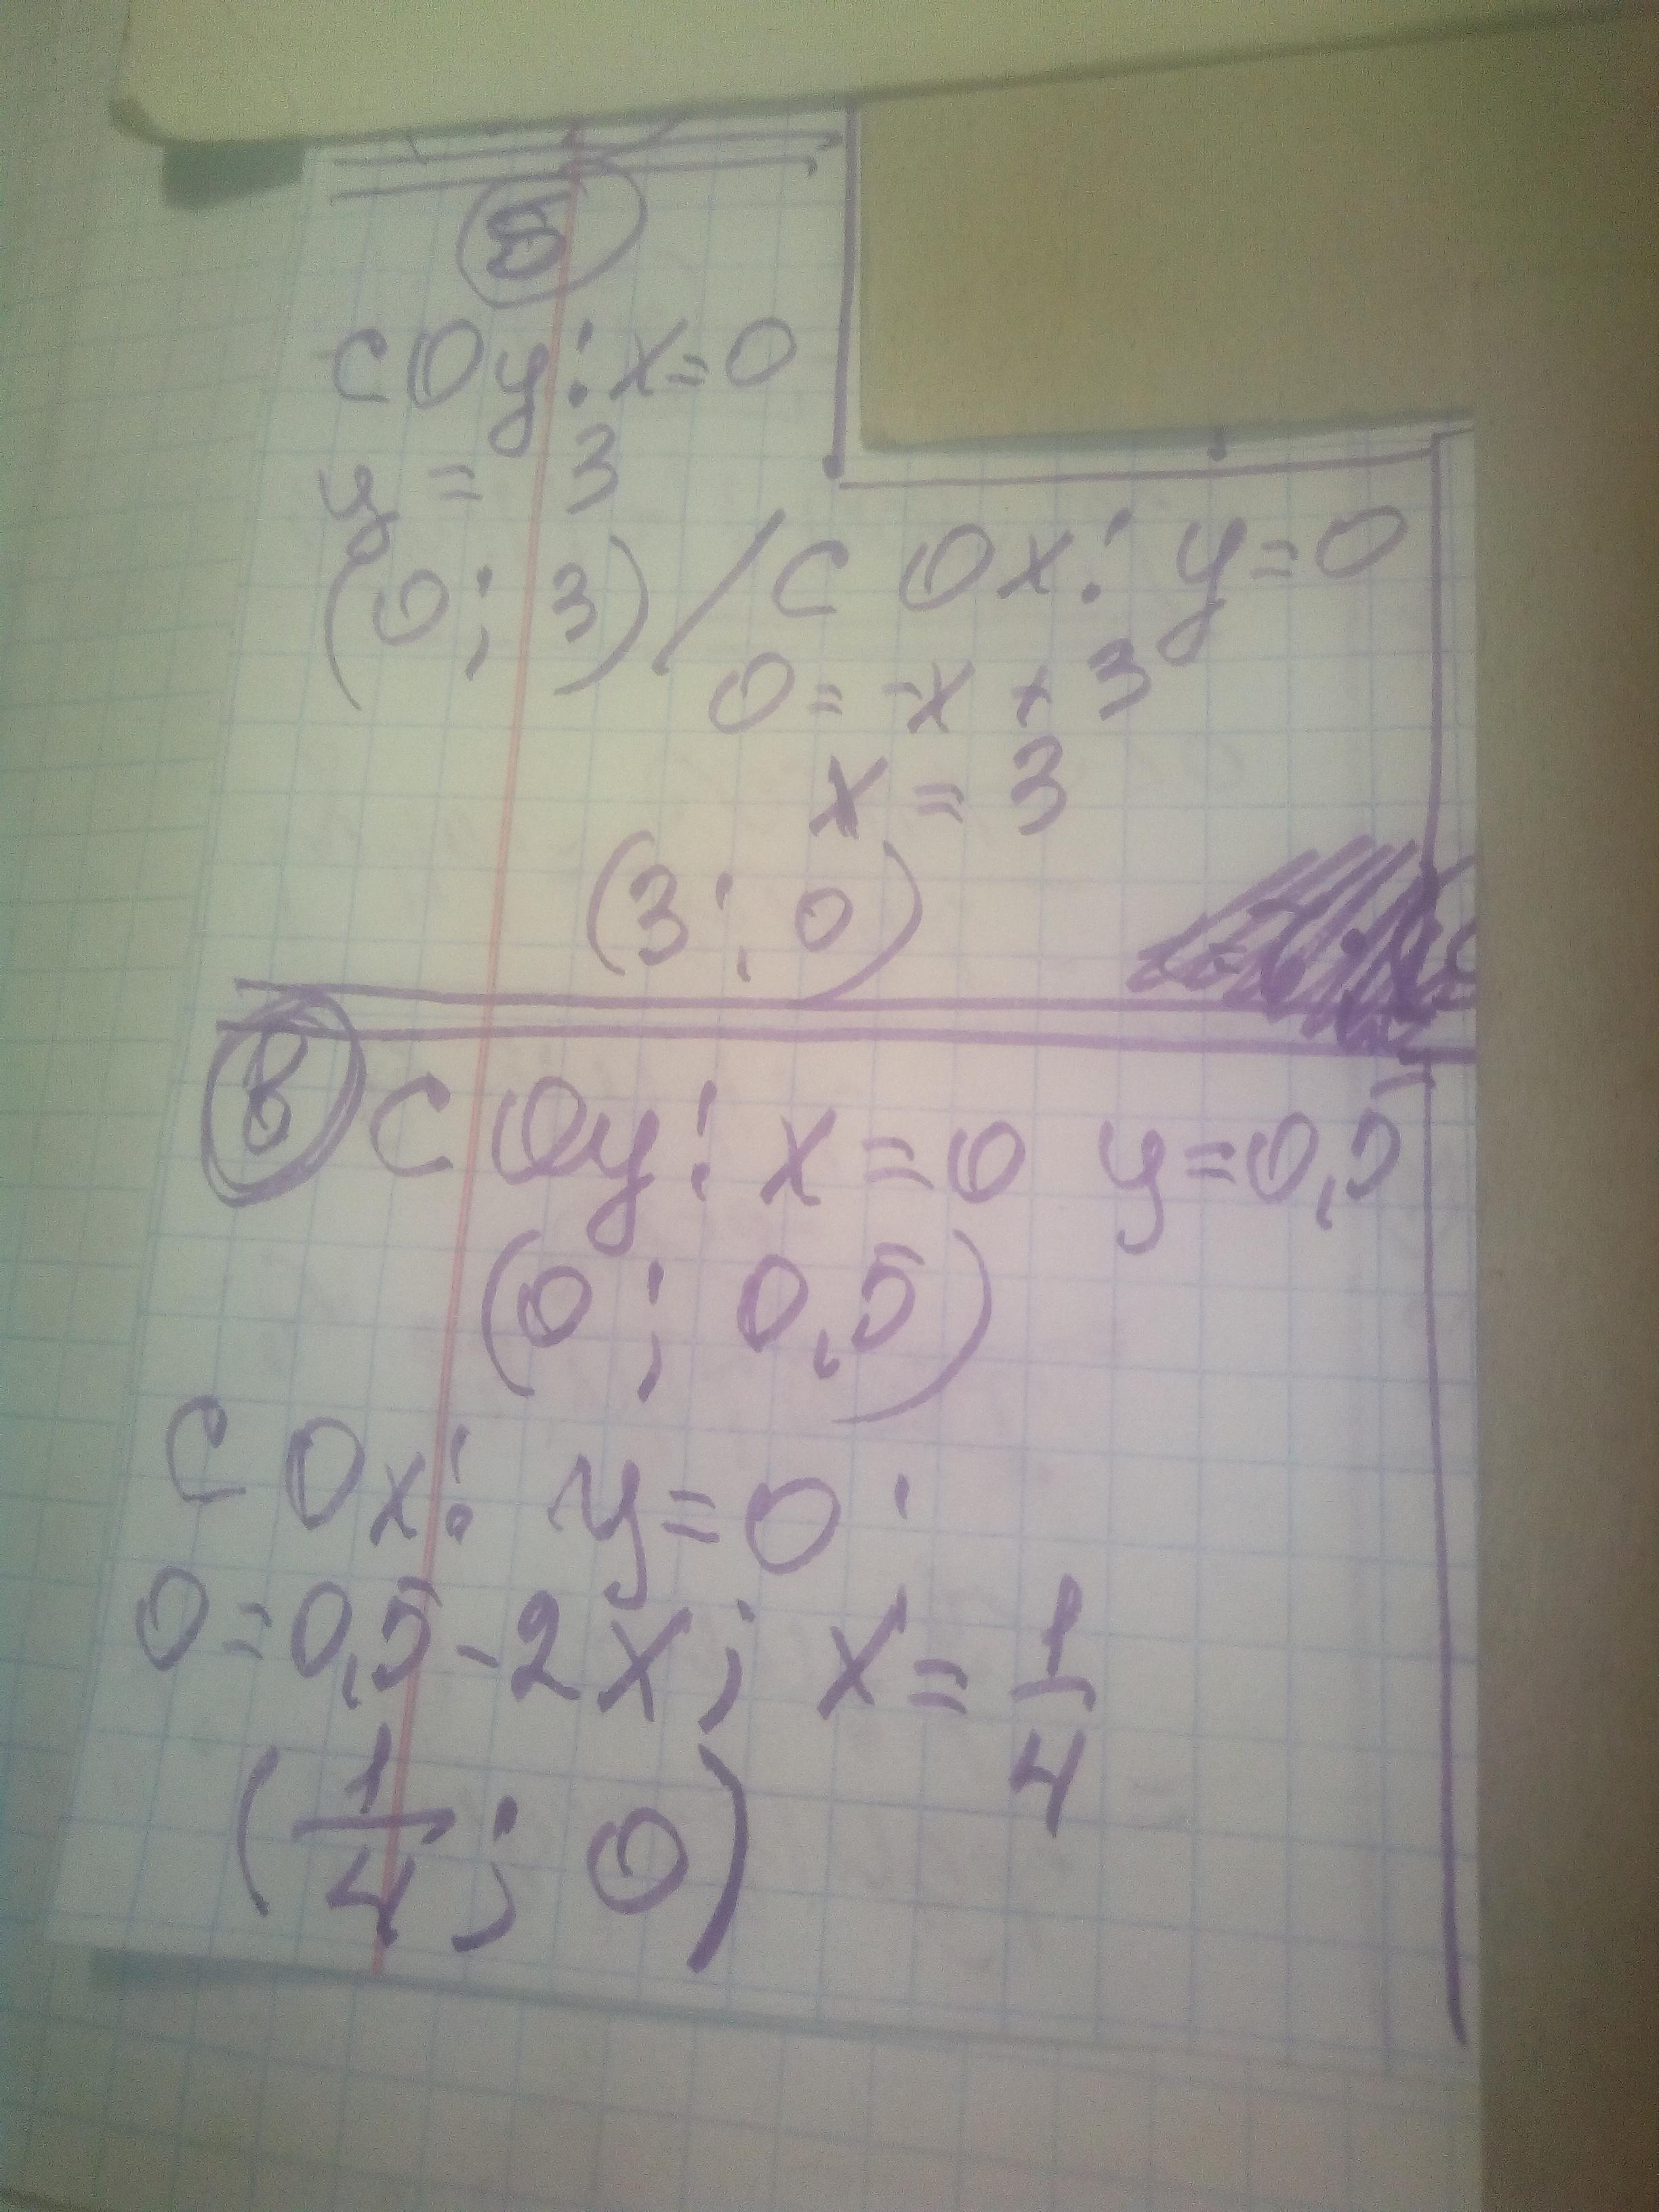 Б
С Оу: x=0
y = 3
(0; 3) / С Ох: y=0
0 = -x + 3
x = 3
(3; 0)
В С Оу: x=0 y=0,5
(0; 0,5)
С Ох: y=0;
0=0,5-2x; x=1/4
(1/4; 0)